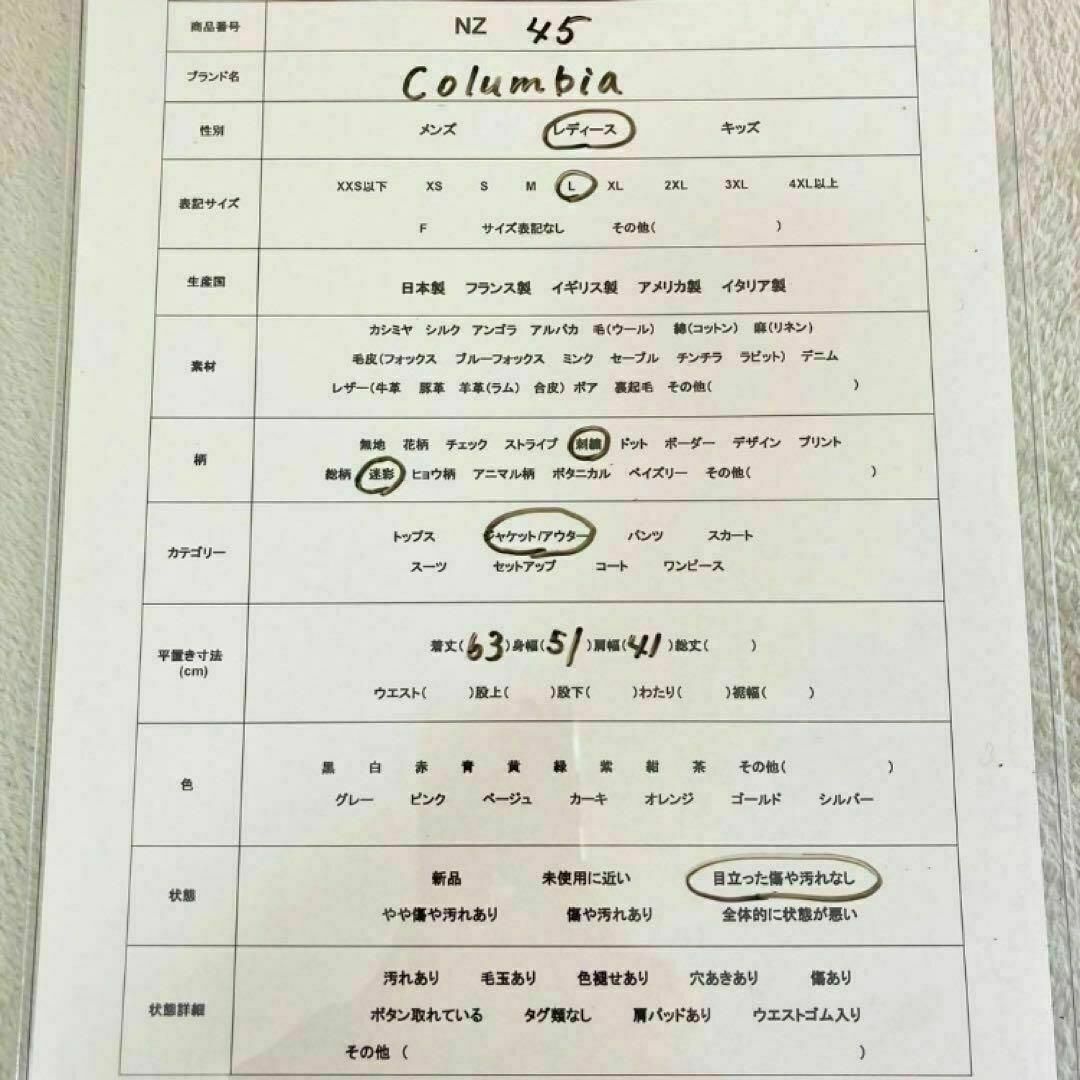 商品番号 NZ 45
ブランド名 Columbia
性別 メンズ レディース キッズ
XXS以下 XS S M L XL 2XL 3XL 4XL以上
表記サイズ
F サイズ表記なし その他( )
生産国 日本製 フランス製 イギリス製 アメリカ製 イタリア製
カシミヤ シルク アンゴラ アルパカ 毛(ウール) 綿(コットン) 麻(リネン)
素材 毛皮(フォックス ブルーフォックス ミンク セーブル チンチラ ラビット) デニム
レザー(牛革 豚革 羊革(ラム) 合皮) ボア 裏起毛 その他( )
無地 花柄 チェック ストライプ 刺繍 ドット ボーダー デザイン プリント
柄
総柄 迷彩 ヒョウ柄 アニマル柄 ボタニカル ペイズリー その他( )
トップス ジャケット/アウター パンツ スカート
カテゴリー
スーツ セットアップ コート ワンピース
着丈(63)身幅(51)肩幅(41)総丈( )
平置き寸法
(cm)
ウエスト( )股上( )股下( )わたり( )裾幅( )
黒 白 赤 青 黄 緑 紫 紺 茶 その他( )
色
グレー ピンク ベージュ カーキ オレンジ ゴールド シルバー
新品 未使用に近い 目立った傷や汚れなし
状態
やや傷や汚れあり 傷や汚れあり 全体的に状態が悪い
汚れあり 毛玉あり 色褪せあり 穴あきあり 傷あり
状態詳細 ボタン取れている タグ類なし 肩パッドあり ウエストゴム入り
その他 ( )